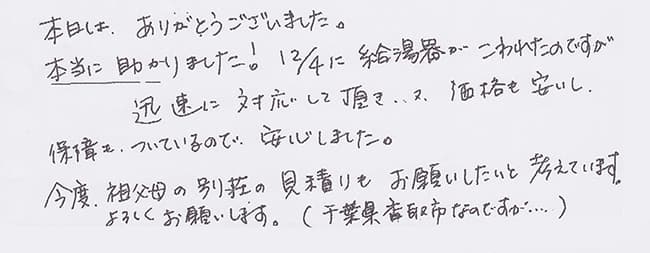 本日は、ありがとうございました。
本当に助かりました！12/4に給湯器がこわれたのですが
迅速に対応して頂き、又、価格も安いし、
保障も、ついているので、安心しました。
今度、祖父母の別荘の見積りもお願いしたいと考えています。
よろしくお願いします。(千葉県香取市なのですが....)